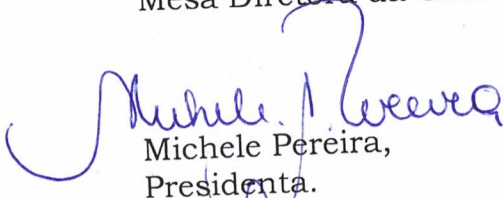 Mesa Diretora da
Michele. P. Pereira
Michele Pereira,
Presidenta.